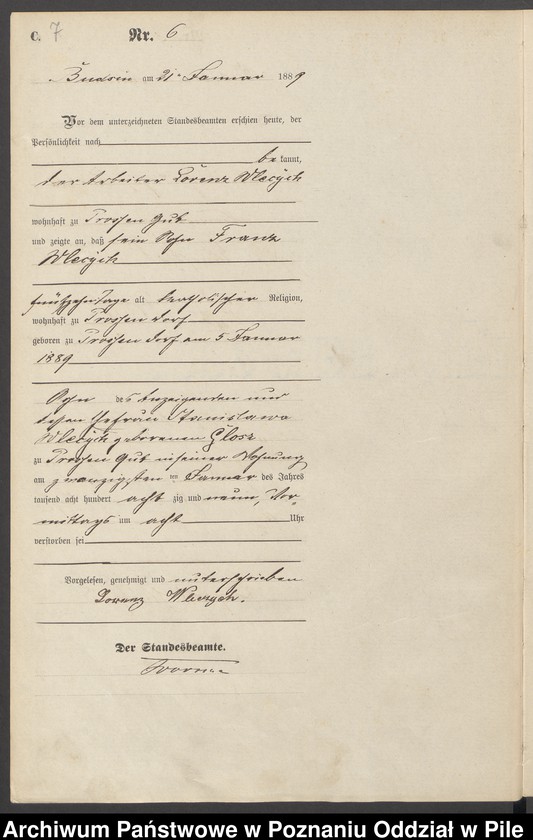 C. 7 Nr. 6
Budsin am 21. Januar 1889
Vor dem unterzeichneten Standesbeamten erschien heute, der
Persönlichkeit nach
bekannt,
der Arbeiter Lorenz Wlecych
wohnhaft zu Gut
und zeigte an, daß sein Sohn Franz
Wlecych
fünfzehn Tage alt katholischer Religion,
wohnhaft zu dorf
geboren zu dorf am 5 Januar
1889
Sohn des Anzeigenden und
dessen Ehefrau Stanislawa
Wlecych geborenen Glosz
zu Gut in seiner Wohnung
am zwanzigsten ten Januar des Jahres
tausend acht hundert acht zig und neun, Vor-
mittags um acht Uhr
verstorben sei
Vorgelesen, genehmigt und unterschrieben
Lorenz Wlecych.
Der Standesbeamte.
Archiwum Państwowe w Poznaniu Oddział w Pile